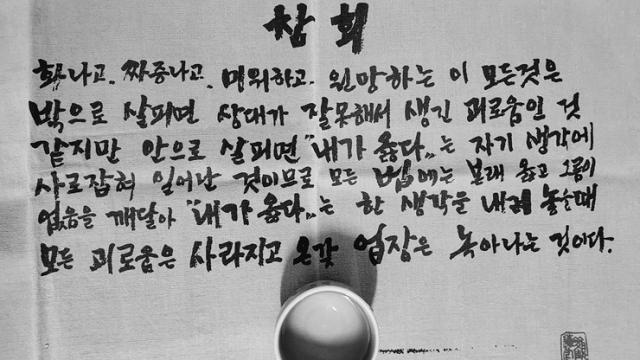 참회
화나고. 짜증나고. 미워하고. 원망하는 이 모든것은
밖으로 살피면 상대가 잘못해서 생긴 괴로움인 것
같지만 안으로 살피면 "내가 옳다"는 자기 생각에
사로잡혀 일어난 것이므로 모든 법에는 본래 옳고 그름이
없음을 깨달아 "내가 옳다"는 한 생각을 내려 놓을때
모든 괴로움은 사라지고 온갖 업장은 녹아나는 것이다.